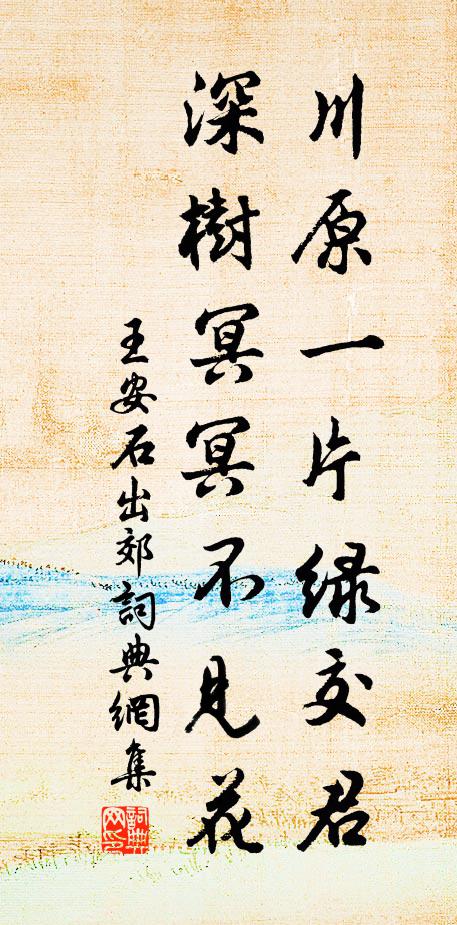 川原一片绿交君
深樹冥冥不見花
王安石出郊詞典網集
詞典网印